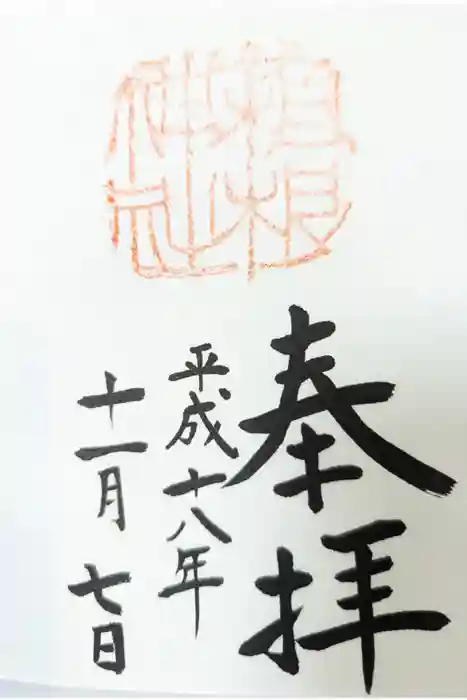 神社
奉拝
平成十八年
十一月七日